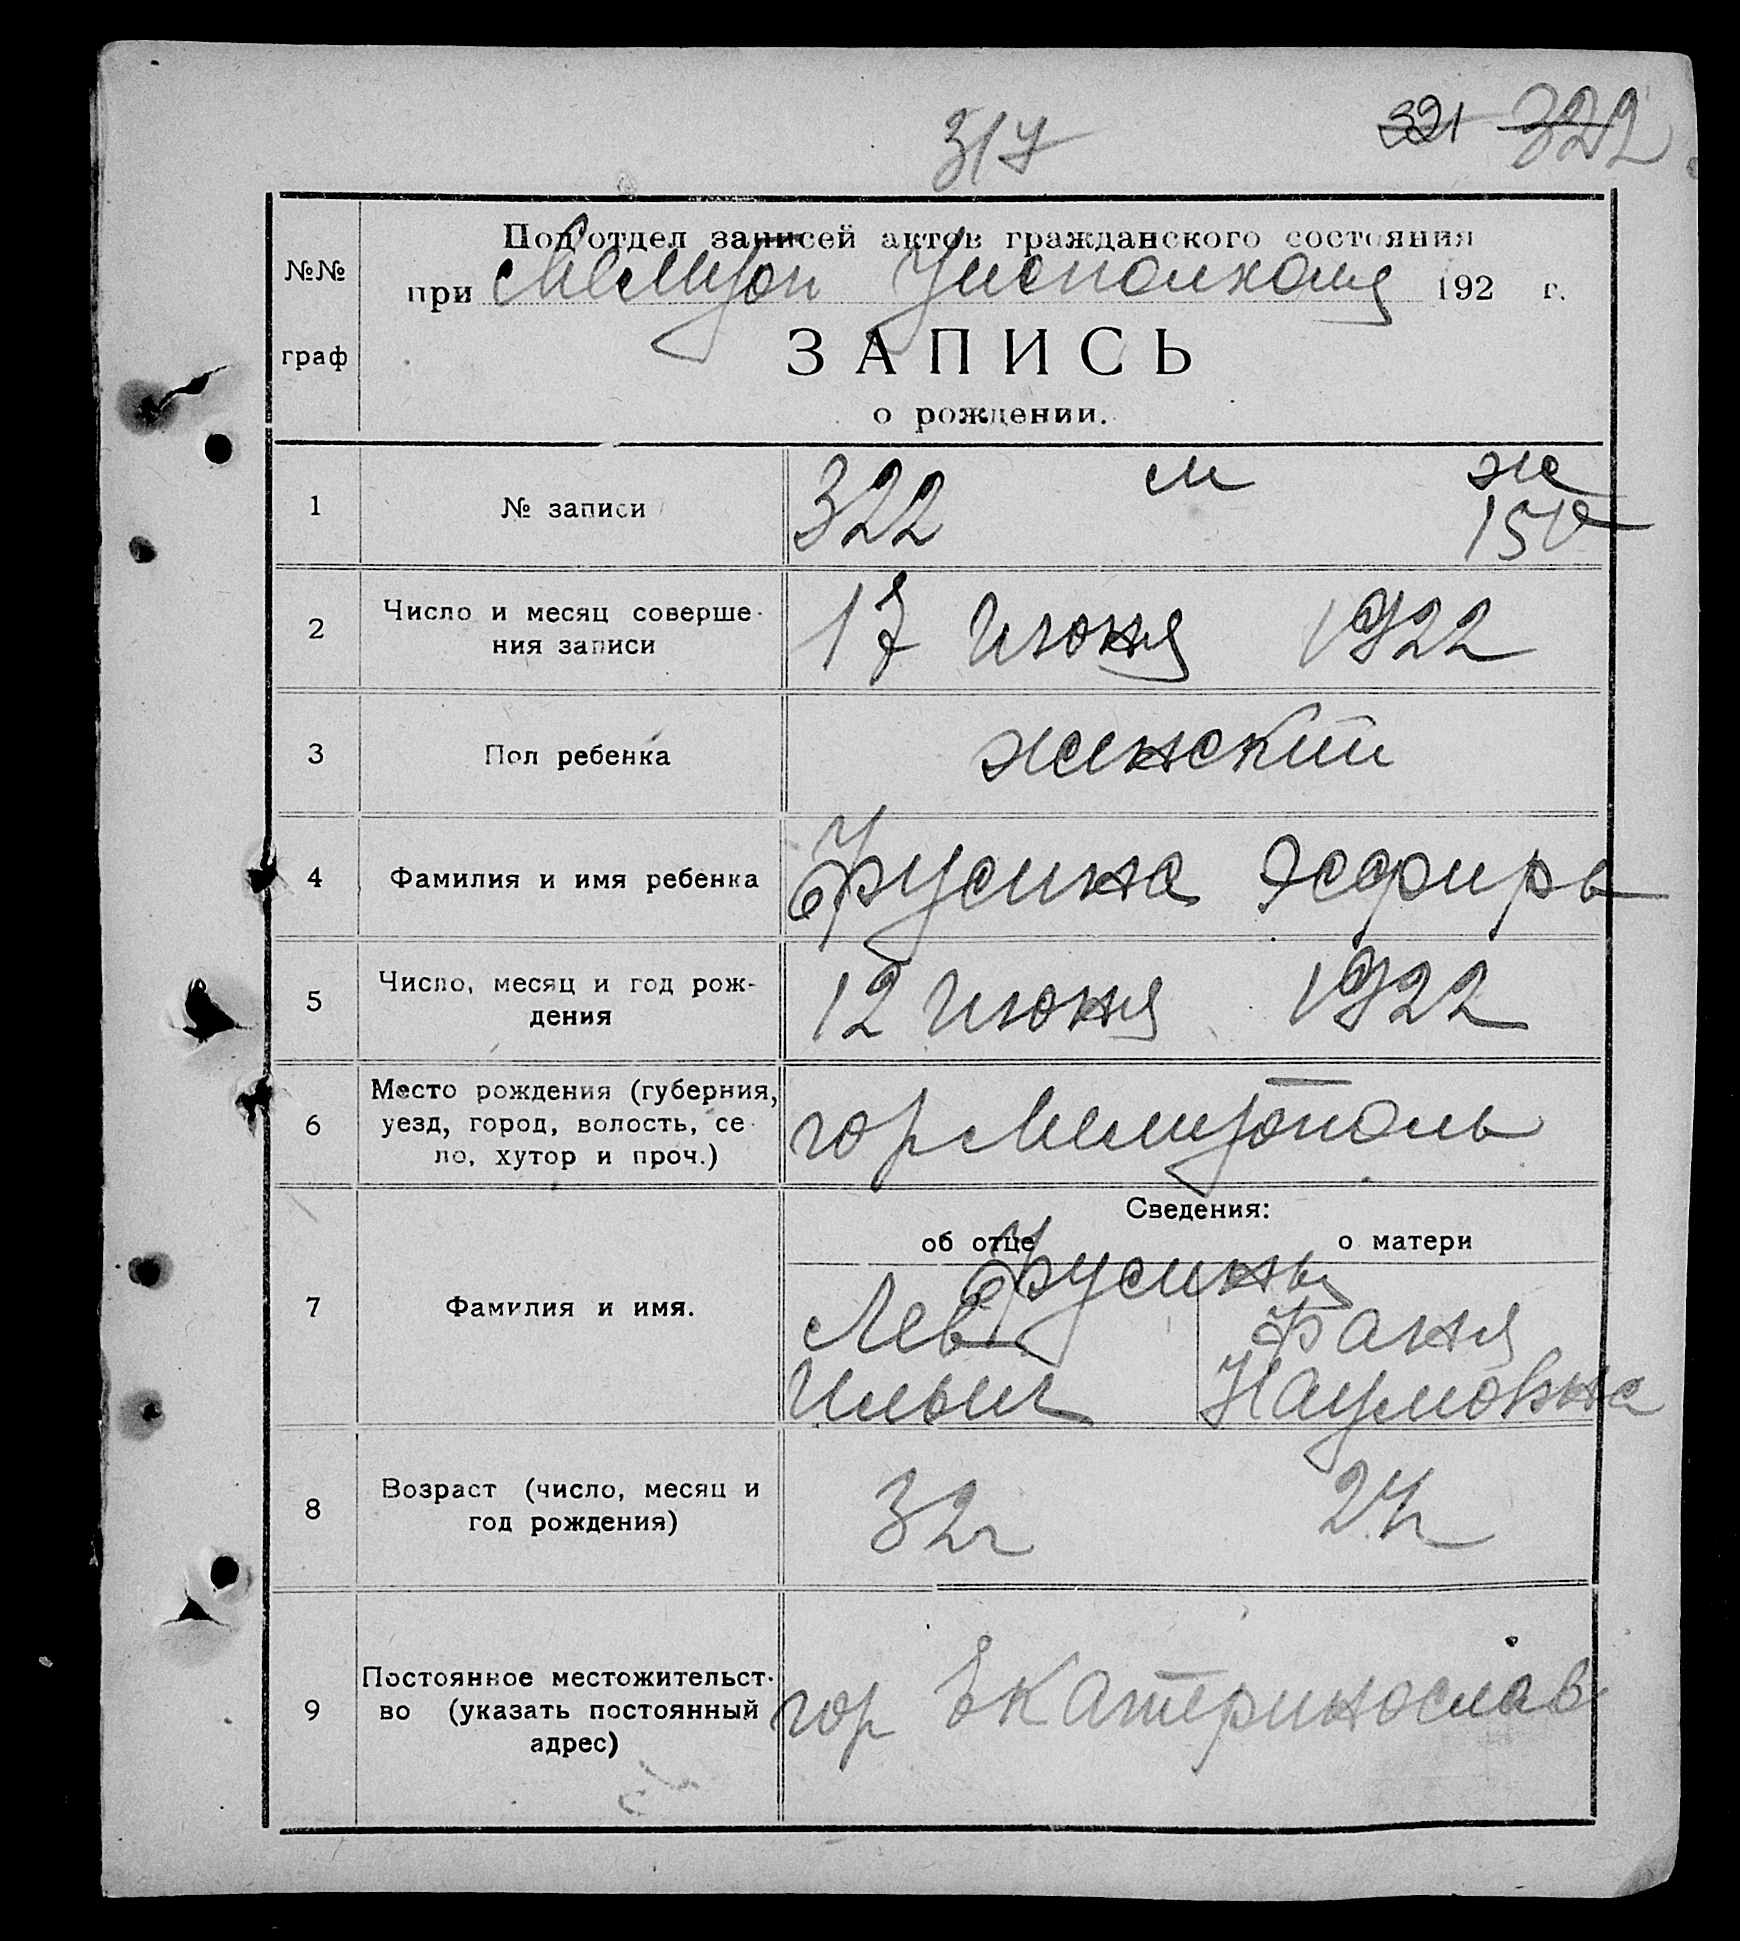 317 321 322
№№
граф
Под'отдел записей актов гражданского состояния
при Мелитоп Уисполкома 192 г.
ЗАПИСЬ
о рождении.
1 № записи 322 м ж
150
2 Число и месяц соверше-
ния записи
17 Июня 1922
3 Пол ребенка женский
4 Фамилия и имя ребенка Фрусина Эсфирь
5 Число, месяц и год рож-
дения
12 Июня 1922
6 Место рождения (губерния,
уезд, город, волость, се-
ло, хутор и проч.)
гор Мелитополь
Сведения:
об отце о матери
7 Фамилия и имя.
Фрусины
Лев Фаня
Ильич Наумовна
8 Возраст (число, месяц и
год рождения)
32г
9 Постоянное местожительст-
во (указать постоянный
адрес)
гор Екатеринослав